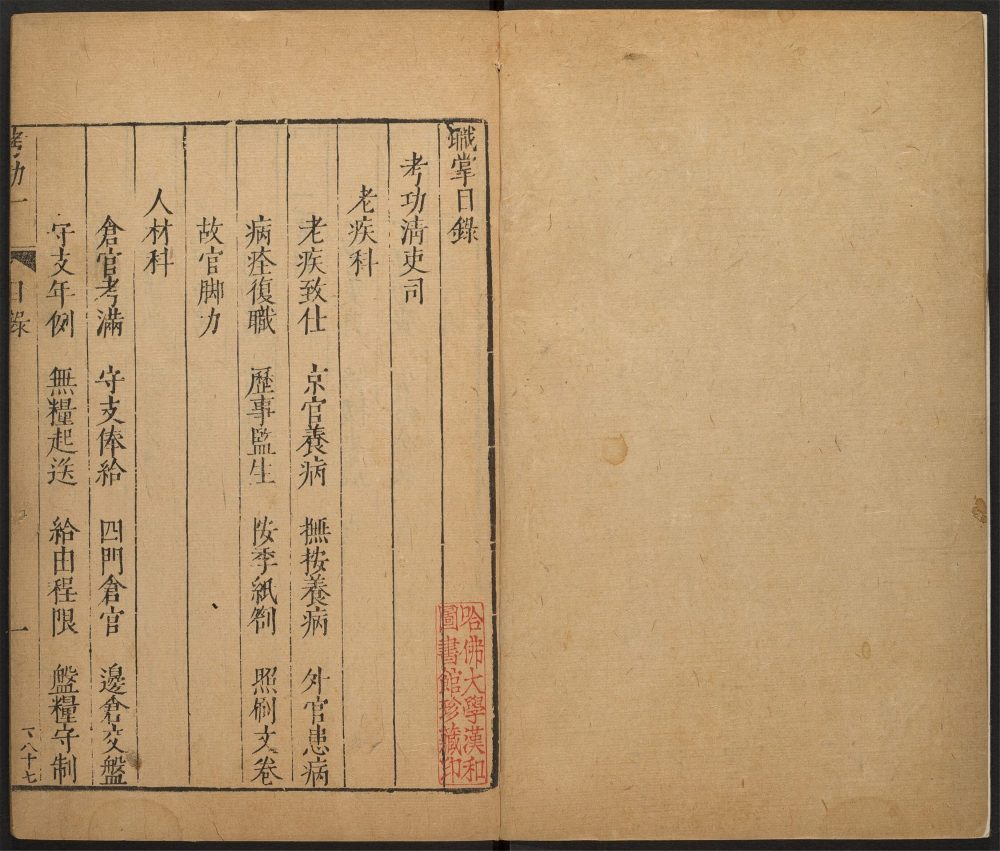 職掌目錄
考功淸吏司
老疾科
老疾致仕　京官養病　撫按養病　外官患病
病痊復職　歷事監生　按季紙劄　照刷文卷
故官脚力
人材科
倉官考滿　守支俸給　四門倉官　邊倉交盤
守支年例　無糧起送　給由程限　盤糧守制
考功一　目錄　一　下八十七
哈佛大學漢和
圖書館珍藏印